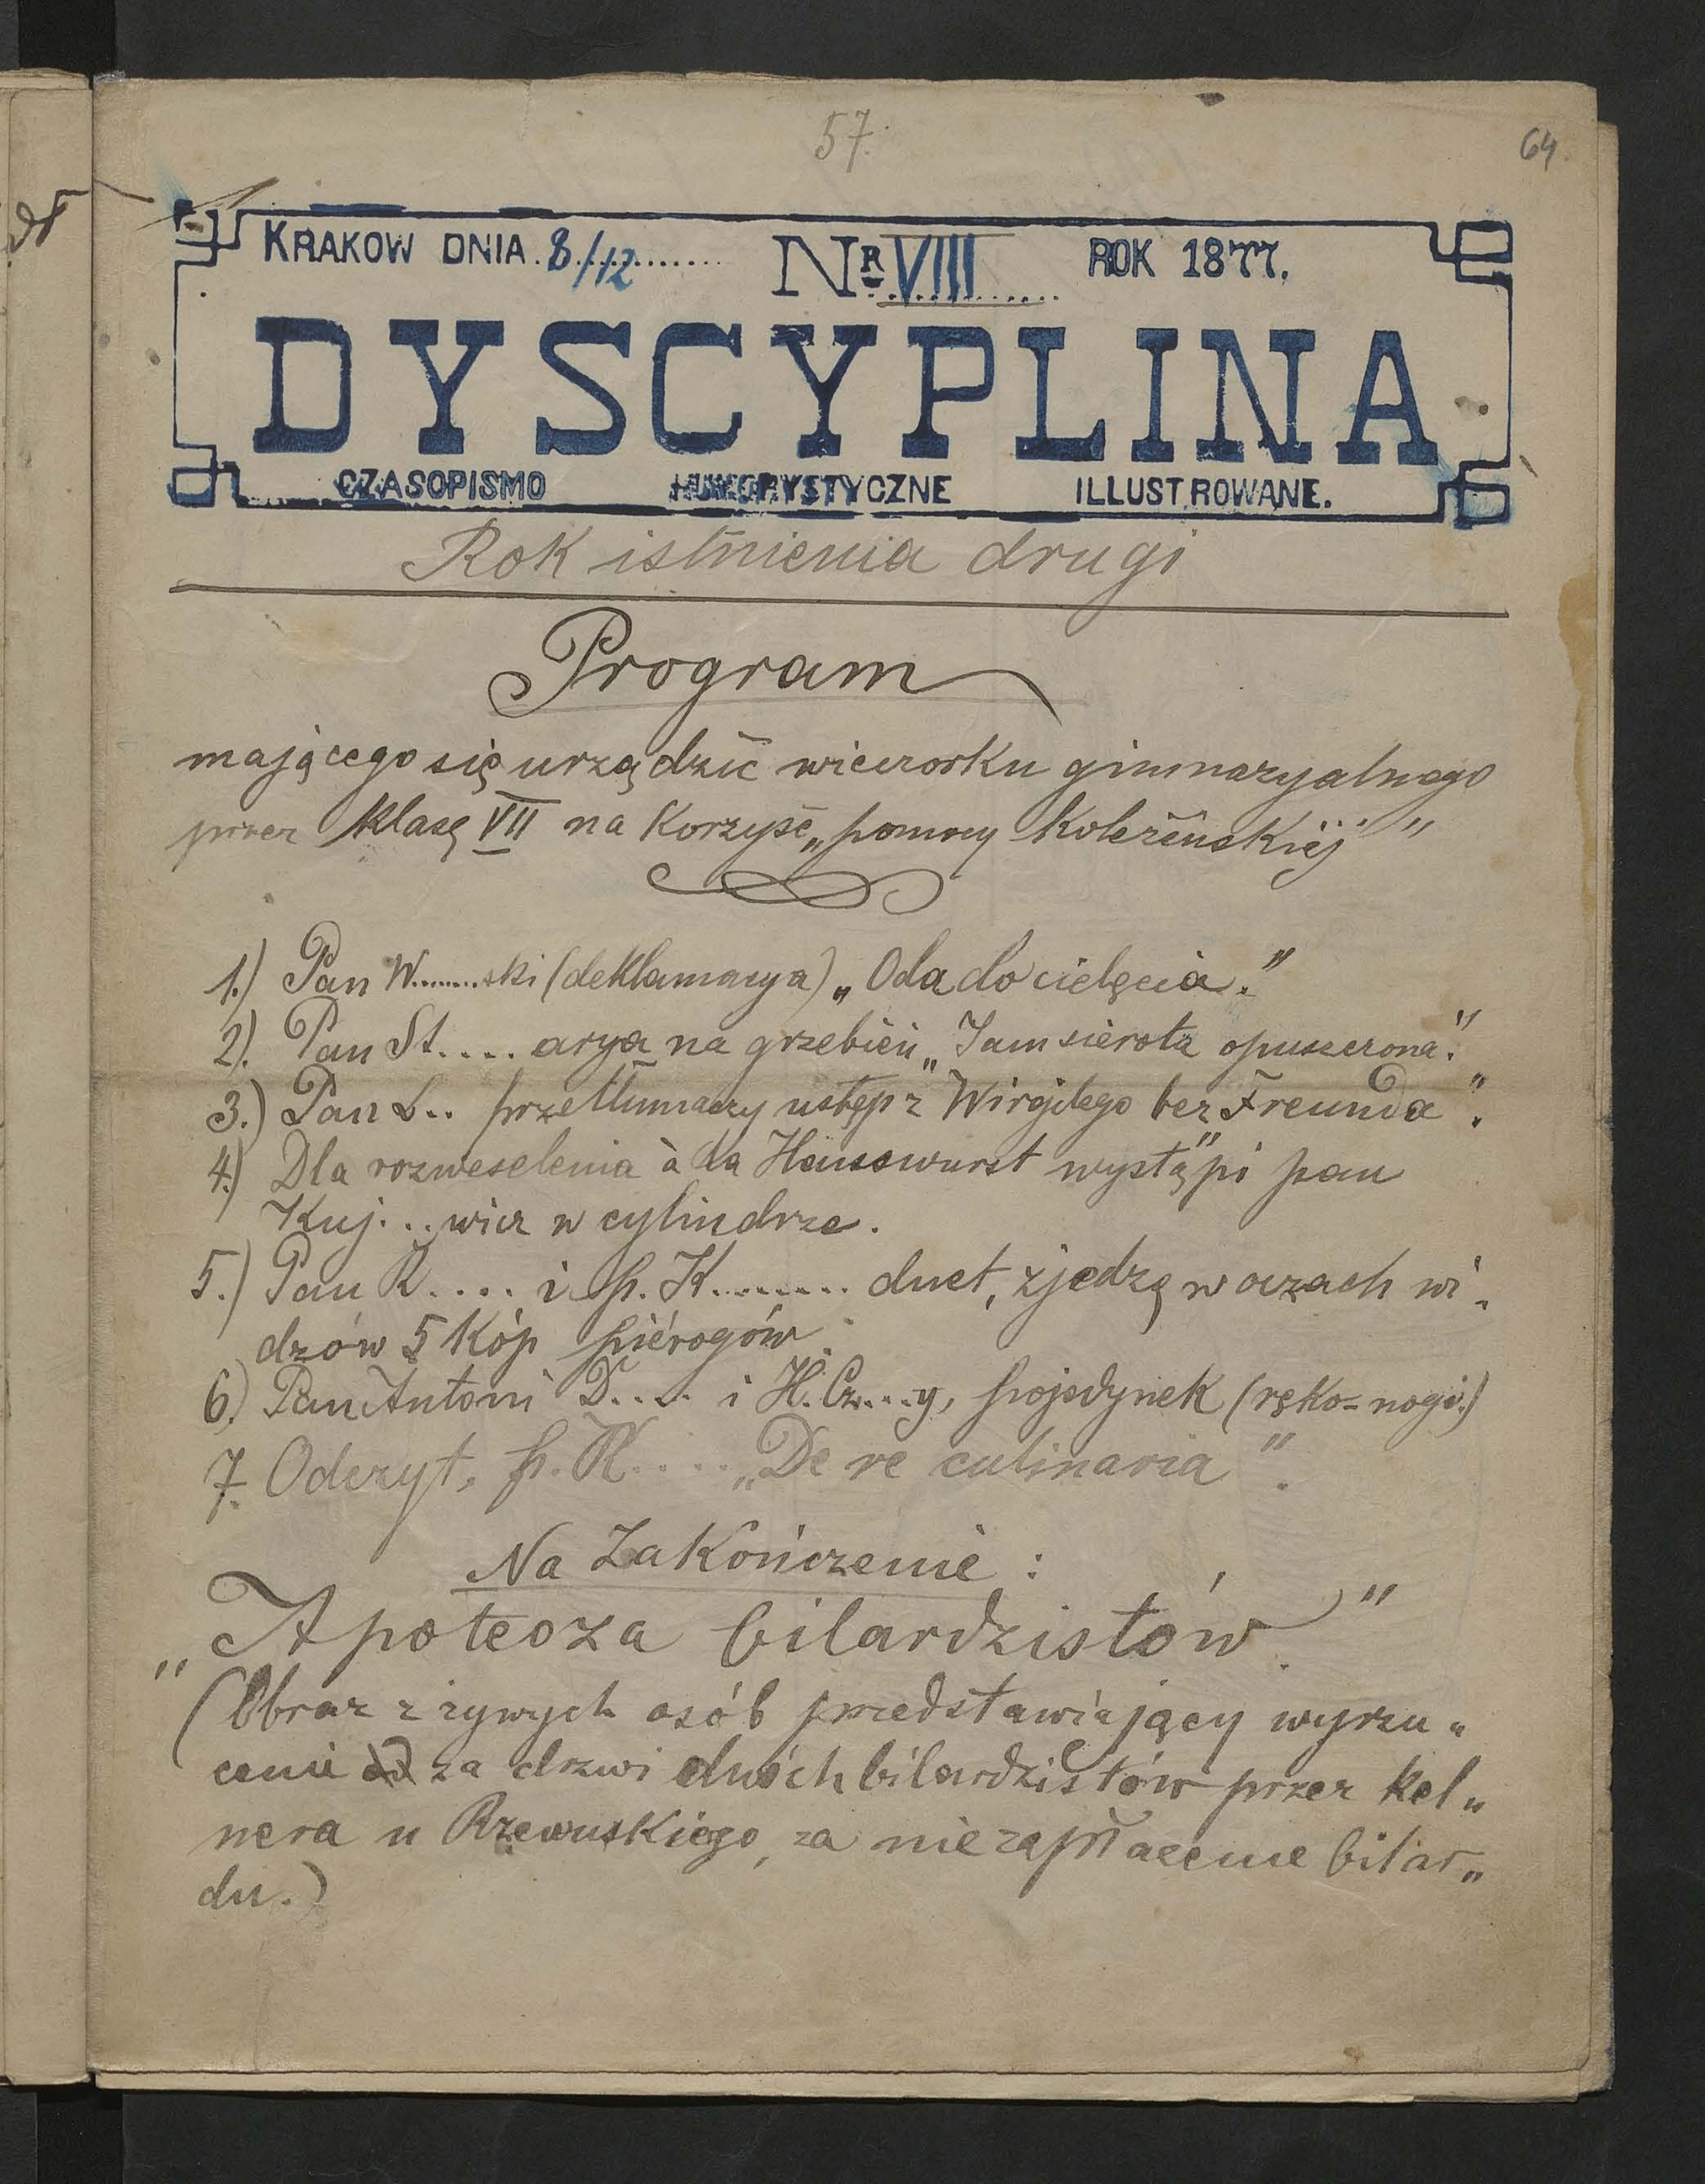 57.
64
KRAKOW DNIA 8/12 NR VIII ROK 1877.
DYSCYPLINA
CZASOPISMO HUMORYSTYCZNE ILLUSTROWANE.
Rok istnienia drugi
Program
mającego się urządzić wieczorku gimnazyalnego
przez klasę VII na korzyść „pomocy koleżeńskiéj"
1.) Pan W........ski (deklamacya) „Oda do cielęcia."
2). Pan St.... arya na grzebień „Jam sierota opuszczona".
3.) Pan L.. przetłumaczy ustęp z „Wirgilego bez Freunda".
4.) Dla rozweselenia à la Hanswurst wystąpi pan
Kuj...wicz w cylindrze.
5.) Pan R.... i p. K........ duet, zjedzą w oczach wi„
dzów 5 kóp piérogów.
6.) Pan Antoni D.... i H. Cz...y, pojedynek (ręko=nogi.)
7. Odczyt, p. K.... „De re culinaria".
Na zakończenie :
„Apoteoza bilardzistów"
(Obraz z żywych osób przedstawiający wyrzu„
cenie za drzwi dwóch bilardzistów przez kel„
nera u Rzewuskiego, za niezapłacenie bilar„
du.)